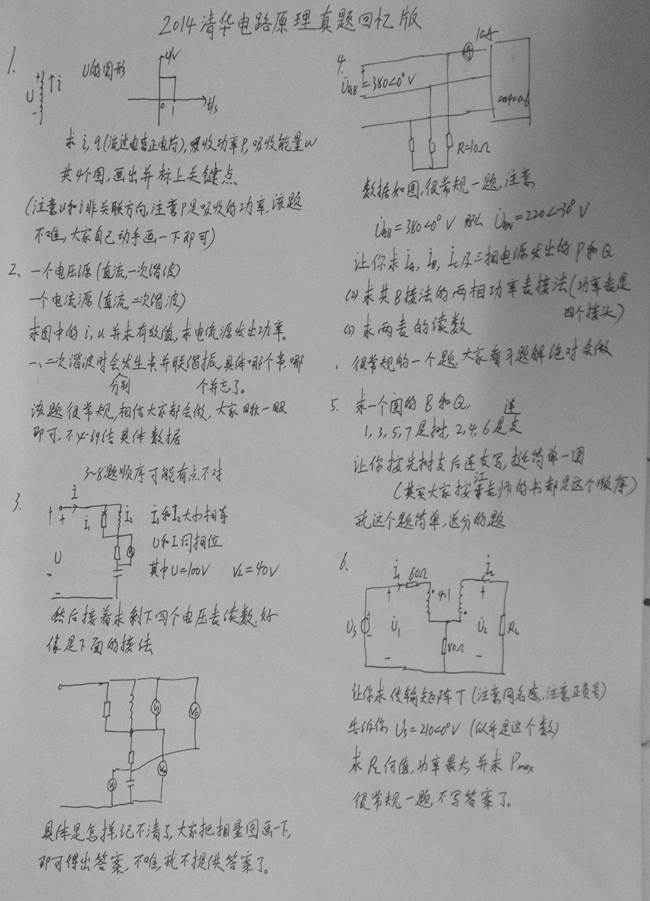 2014清华电路原理真题回忆版
1.
U的图形
u/v
0 1 t/s
U
i
求i,q(流过电容正电荷),吸收功率P,吸收能量w
共4个图,画出并标上关键点
(注意u和i非关联方向,注意P是吸收的功率.该题
不难,大家自己动手画一下即可)
2、一个电压源(直流,一次谐波)
一个电流源(直流,二次谐波)
求图中的i,u并求有效值,求电流源发出功率。
一、二次谐波时会发生串并联谐振,具体哪个串哪
分别 个并忘了。
该题很常规,相信大家都会做,大家瞅一眼
即可,不必纠结具体数据
3~8题顺序可能有点不对
3.
i
I₁ I₂
U
I₁和I₂大小相等
U和I同相位
其中U=100V V₁=40V
然后接着求剩下四个电压表读数,好
像是下面的接法
具体是怎样,记不清了,大家把相量图画一下,
即可得出答案,不难,就不提供答案了。
4.
10A
U̇AB=380<0°V
R=10Ω
数据如图,很常规一题,注意
U̇AB=380<0°V 那么 U̇AN=220<-30°V
让你求İA, İB, İC及三相电源发出的P和Q
(2)求共B接法的两相功率表接法(功率表是
四个接头)
(3)求两表的读数
很常规的一个题,大家看习题解绝对会做
5. 求一个图的B和Q,
连
1,3,5,7是树,2,4,6是支
让你按先树支后连支写,超简单一图
江
(其实大家按老师的书都是这个顺序)
就这个题简单,送分的题
6.
İ₁ 60Ω İ₂
4:1
U̇s U̇₁ U̇₂ RL
80Ω
让你求传输矩阵T(注意同名端,注意正负号)
告诉你Us=210<0°V(似乎是这个数)
求RL何值,功率最大,并求Pmax
很常规一题,不写答案了。